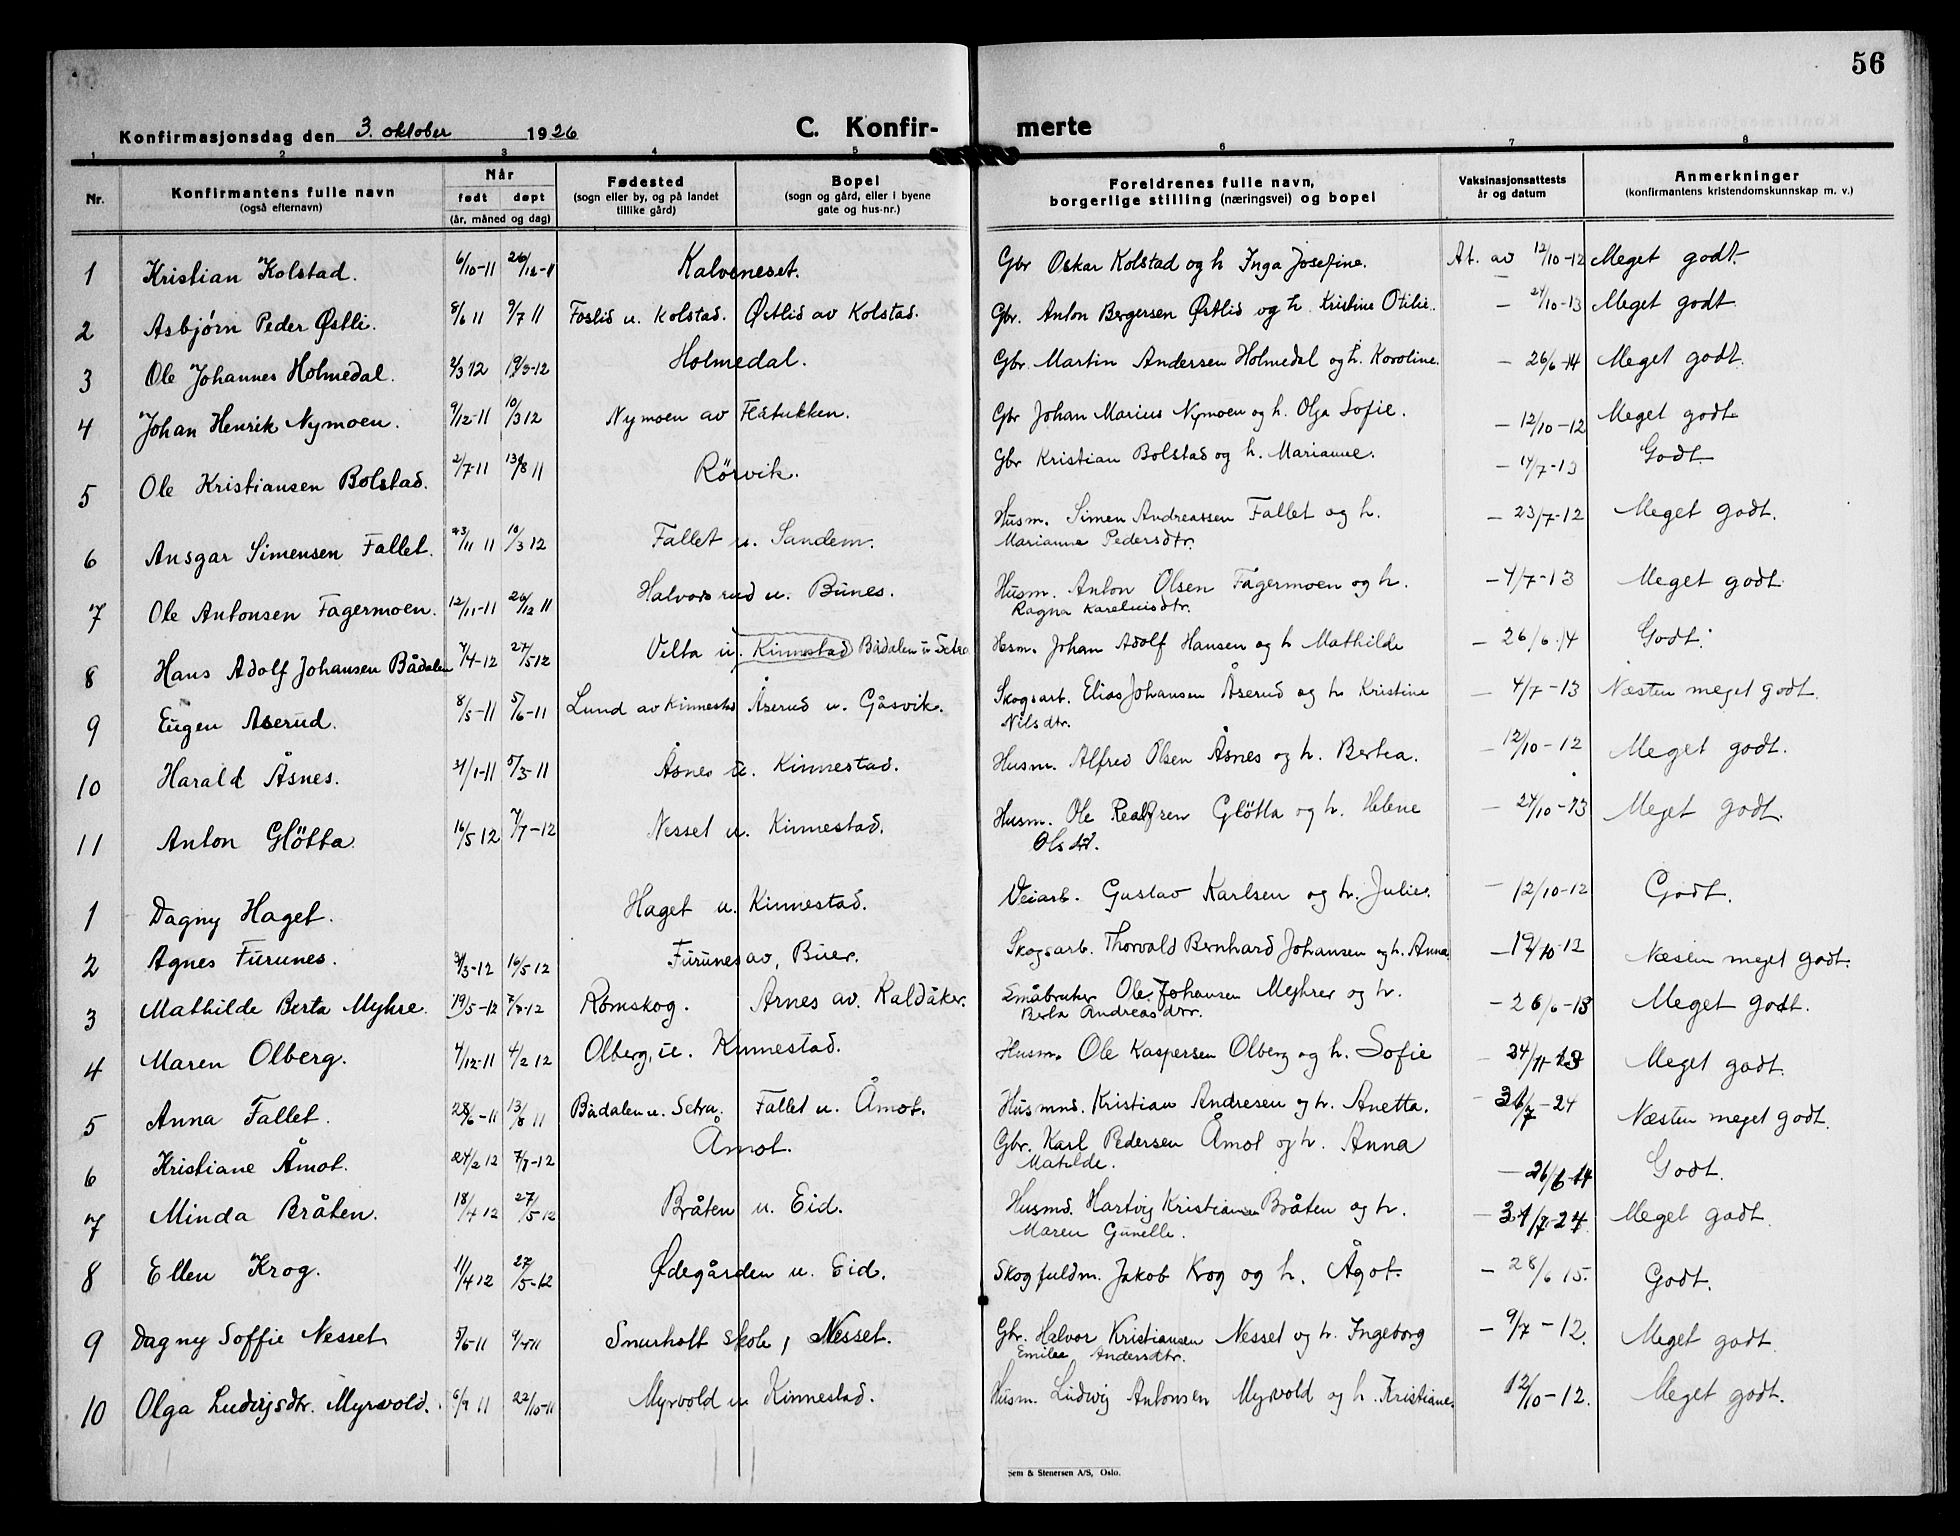 56
Konfirmasjonsdag den 3. oktober 1926 C. Konfir- merte
1 2 3 4 5 6 7 8
Nr. Konfirmantens fulle navn (også efternavn) Når født døpt (år, måned og dag) Fødested (sogn eller by, og på landet tillike gård) Bopel (sogn og gård, eller i byene gate og hus-nr.) Foreldrenes fulle navn, borgerlige stilling (næringsvei) og bopel Vaksinasjonsattests år og datum Anmerkninger (konfirmantens kristendomskunnskap m. v.)
1 Kristian Kolstad. 6/10-11 26/12-11 Kalveneset. Gbr Oskar Kolstad og h Inga Josefine. At. av 12/10-12 Meget godt.
2 Asbjørn Peder Østli. 8/6 11 9/7 11 Foslid u. Kolstad. Østlid av Kolstad. Gbr. Anton Bergersen Østlid og h. Kristine Otilie. – 24/10-13 Meget godt
3 Ole Johannes Holmedal. 2/3 12 19/3-12 Holmedal. Gbr. Martin Andersen Holmedal og h. Karoline. – 26/6-14 Meget godt.
4 Johan Henrik Nymoen. 9/12-11 10/3 12 Nymoen av Flåtukken. Gbr Johan Marius Nymoen og h. Olga Sofie. – 12/10-12 Meget godt
5 Ole Kristiansen Bolstad. 2/7-11 13/8 11 Rörvik. Gbr Kristian Bolstad og h. Marianne. – 14/7-13 Godt.
6 Ansgar Simensen Fallet. 23/11 11 10/3 12 Fallet u. Sandem. Husm. Simen Andreassen Fallet og h. – 23/7-12 Meget godt.
Marianne Pedersdtr.
7 Ole Antonsen Fagermoen. 12/11-11 26/12 11 Halvorsrud u. Bunes. Husm. Anton Olsen Fagermoen og h. – 4/7-13 Meget godt.
Ragna Kareliusdtr.
8 Hans Adolf Johansen Bådalen 7/4-12 27/5 12 Velta u. Kinnestad Bådalen u Setra Husm. Johan Adolf Hansen og h Mathilde – 26/6 14 Godt.
9 Eugen Aserud. 8/5-11 5/6-11 Lund av Kinnestad Åserud u. Gåsvik. Skogsarb. Elias Johansen Åserud og h Kristine – 4/7-13 Næsten meget godt.
Nilsdtr.
10 Harald Åsnes. 21/1-11 5/3-11 Åsnes u. Kinnestad. Husm. Alfred Olsen Åsnes og h. Bertea. – 12/10-12 Meget godt.
11 Anton Glötta 16/5 12 7/7-12 Nesset u. Kinnestad. Husm. Ole Realfsen Glötta og h. Helene – 24/10-13 Meget godt.
Olsdtr.
1 Dagny Haget. Haget u. Kinnestad. Veiarb. Gustav Karlsen og h. Julie. – 12/10-12 Godt.
2 Agnes Furunes. 3/3-12 16/5 12 Furunes av, Buer. Skogsarb. Thorvald Bernhard Johansen og h. Anna – 12/10-12 Næsten meget godt.
3 Mathilde Berta Myhre. 19/5-12 7/7-12 Römskog. Arnes av. Kaldåker. Småbruker Ole Johansen Meyhrer og h. – 26/6-13 Meget godt.
Berta Andreasdtr.
4 Maren Olberg. 7/12-11 4/2 12 Olberg, u. Kinnestad. Husm. Ole Kaspersen Olberg og h. Sofie – 24/11-13 Meget godt.
5 Anna Fallet. 28/6-11 13/8 11 Bådalen u. Setra. Fallet u. Åmot. Husmnd. Kristian Andresen og h. Anetta. – 31/7-24 Næsten meget godt.
6 Kristiane Åmot. 24/2 12 7/7-12 Åmot. Gbr. Karl Pedersen Åmot og h. Anna – 26/6-14 Godt.
Matilde.
7 Minda Bråten. 18/4 12 27/5 12 Bråten u. Eid. Husmd. Hartvig Kristiansen Bråten og h. – 31/7-24 Meget godt.
Maren Gunelle.
8 Ellen Krog. 11/4 12 27/5-12 Ødegården u. Eid. Skogfuldm. Jakob Krog og h. Ågot. – 28/6 15. Godt.
9 Dagny Soffie Nesset 5/6-11 Snurholt skole, Nesset. Gbr. Halvor Kristiansen Nesset og h. Ingeborg – 9/7-12. Meget godt.
Emilie Andersdtr.
10 Olga Ludvigsdtr. Myrvold. 6/9 11 22/10-11 Myrvold u Kinnestad. Husm. Ludvig Antonsen Myrvold og h. Kristiane. 12/10-12. Meget godt.
Sem & Stenersen A/S, Oslo.